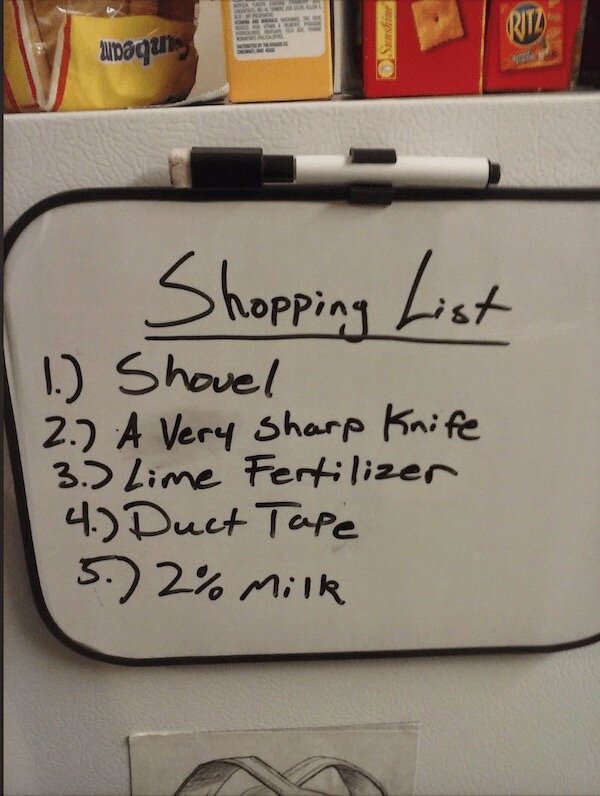 Sunbeam
Sunshine
RITZ
Shopping List
1.) Shovel
2.) A Very Sharp Knife
3.) Lime Fertilizer
4.) Duct Tape
5.) 2% Milk